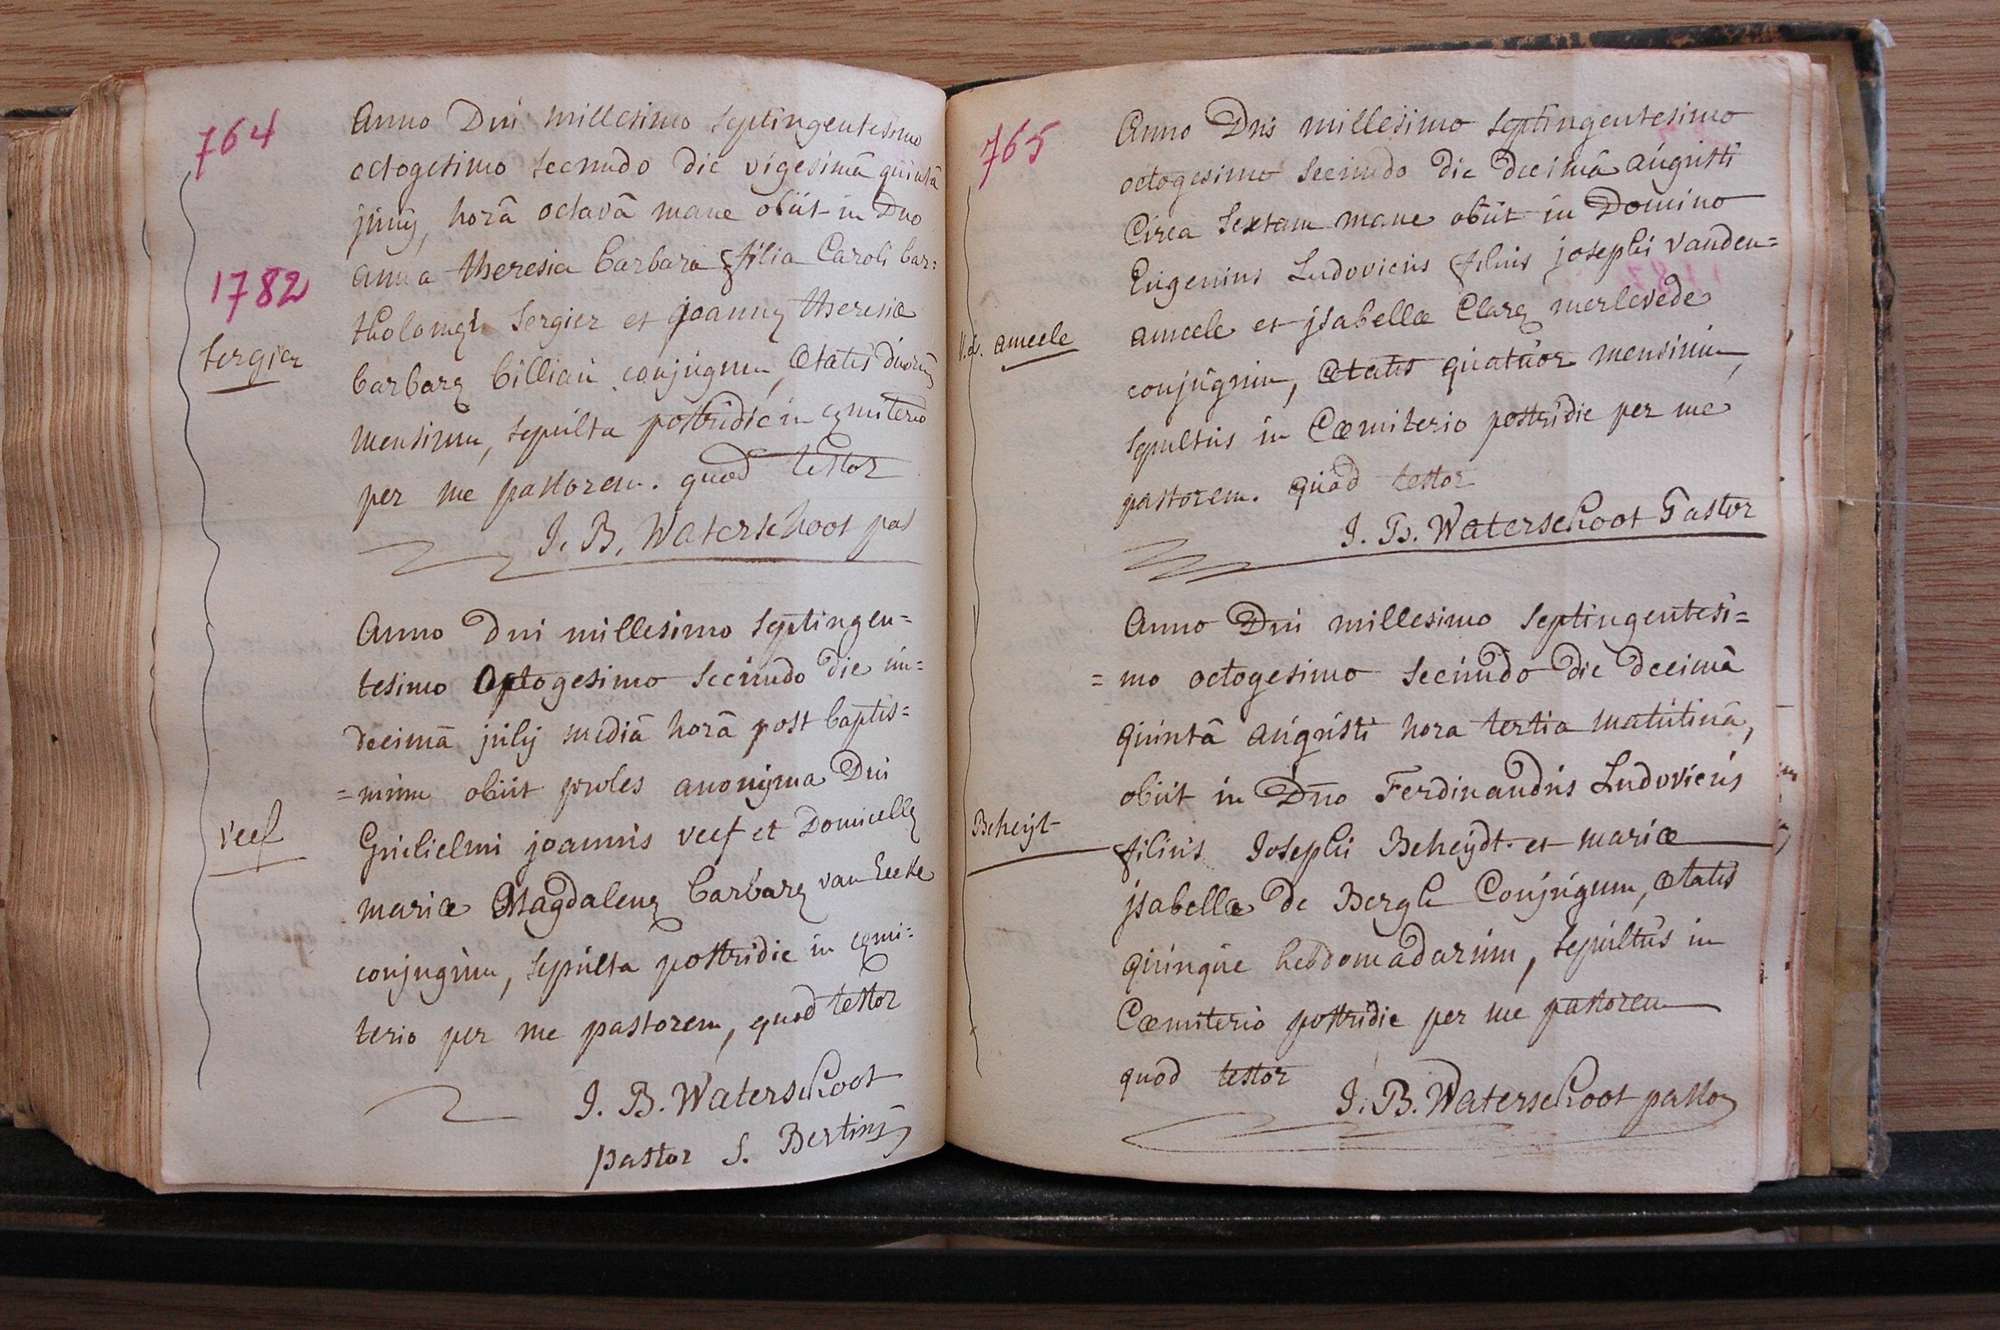 764
Anno Dni millesimo septingentesimo
octogesimo secundo die vigesimâ quintâ
junij, horâ octavâ mane obiit in Dno
anna theresia barbara filia Caroli bar=
tholomęi Sergier et joannę theresiæ
barbarę billiau conjugum, ætatis duorum
mensium, sepulta postridie in cęmiterio
per me pastorem. quod testor
J. B. Waterschoot pas
1782
Sergier
Anno Dni millesimo septingen=
tesimo octogesimo secundo die un=
decimâ julij mediâ horâ post baptis=
=mum obiit proles anonijma Dni
Guilielmi joannis veef et Domicellę
mariæ Magdalenę barbarę van Eecke
conjugum, sepulta postridie in cęmi=
terio per me pastorem, quod testor
J. B. Waterschoot
pastor S. Bertini
veef
765
Anno Dni millesimo septingentesimo
octogesimo secundo die decimâ augusti
Circa sextam mane obiit in Domino
Eugenius Ludovicus filius josephi vanden=
ameele et jsabellæ Claræ merlevede
conjugum, ætatis quatuor mensium,
sepultus in Cœmiterio postridie per me
pastorem. quod testor
J. B. Waterschoot Pastor
ameele
Anno Dni millesimo septingentesi=
=mo octogesimo secundo die decimâ
quintâ augusti hora tertia matutinâ,
obiit in Dno Ferdinandus Ludovicus
filius Josephi Beheydt et mariæ
jsabellæ de Bergh Conjugum, ætatis
quinque hebdomadarum, sepultus in
Cœmiterio postridie per me pastorem
quod testor J. B. Waterschoot pastor
Beheyt